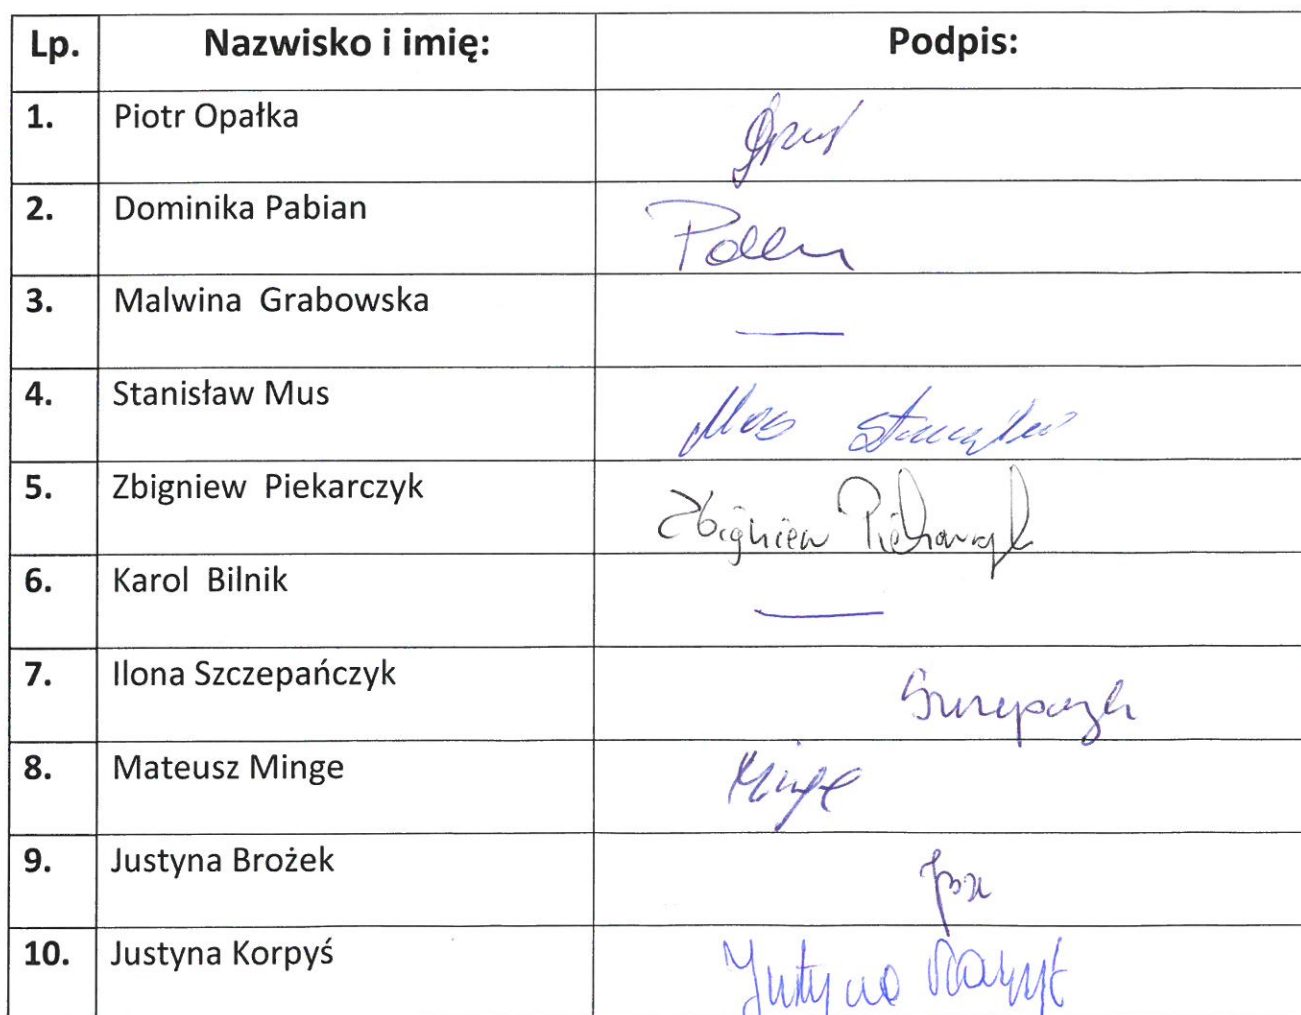 Lp. Nazwisko i imię: Podpis:
1. Piotr Opałka
2. Dominika Pabian
3. Malwina Grabowska —
4. Stanisław Mus Mus Stanisław
5. Zbigniew Piekarczyk Zbigniew Piekarczyk
6. Karol Bilnik —
7. Ilona Szczepańczyk
8. Mateusz Minge Minge
9. Justyna Brożek
10. Justyna Korpyś Justyna